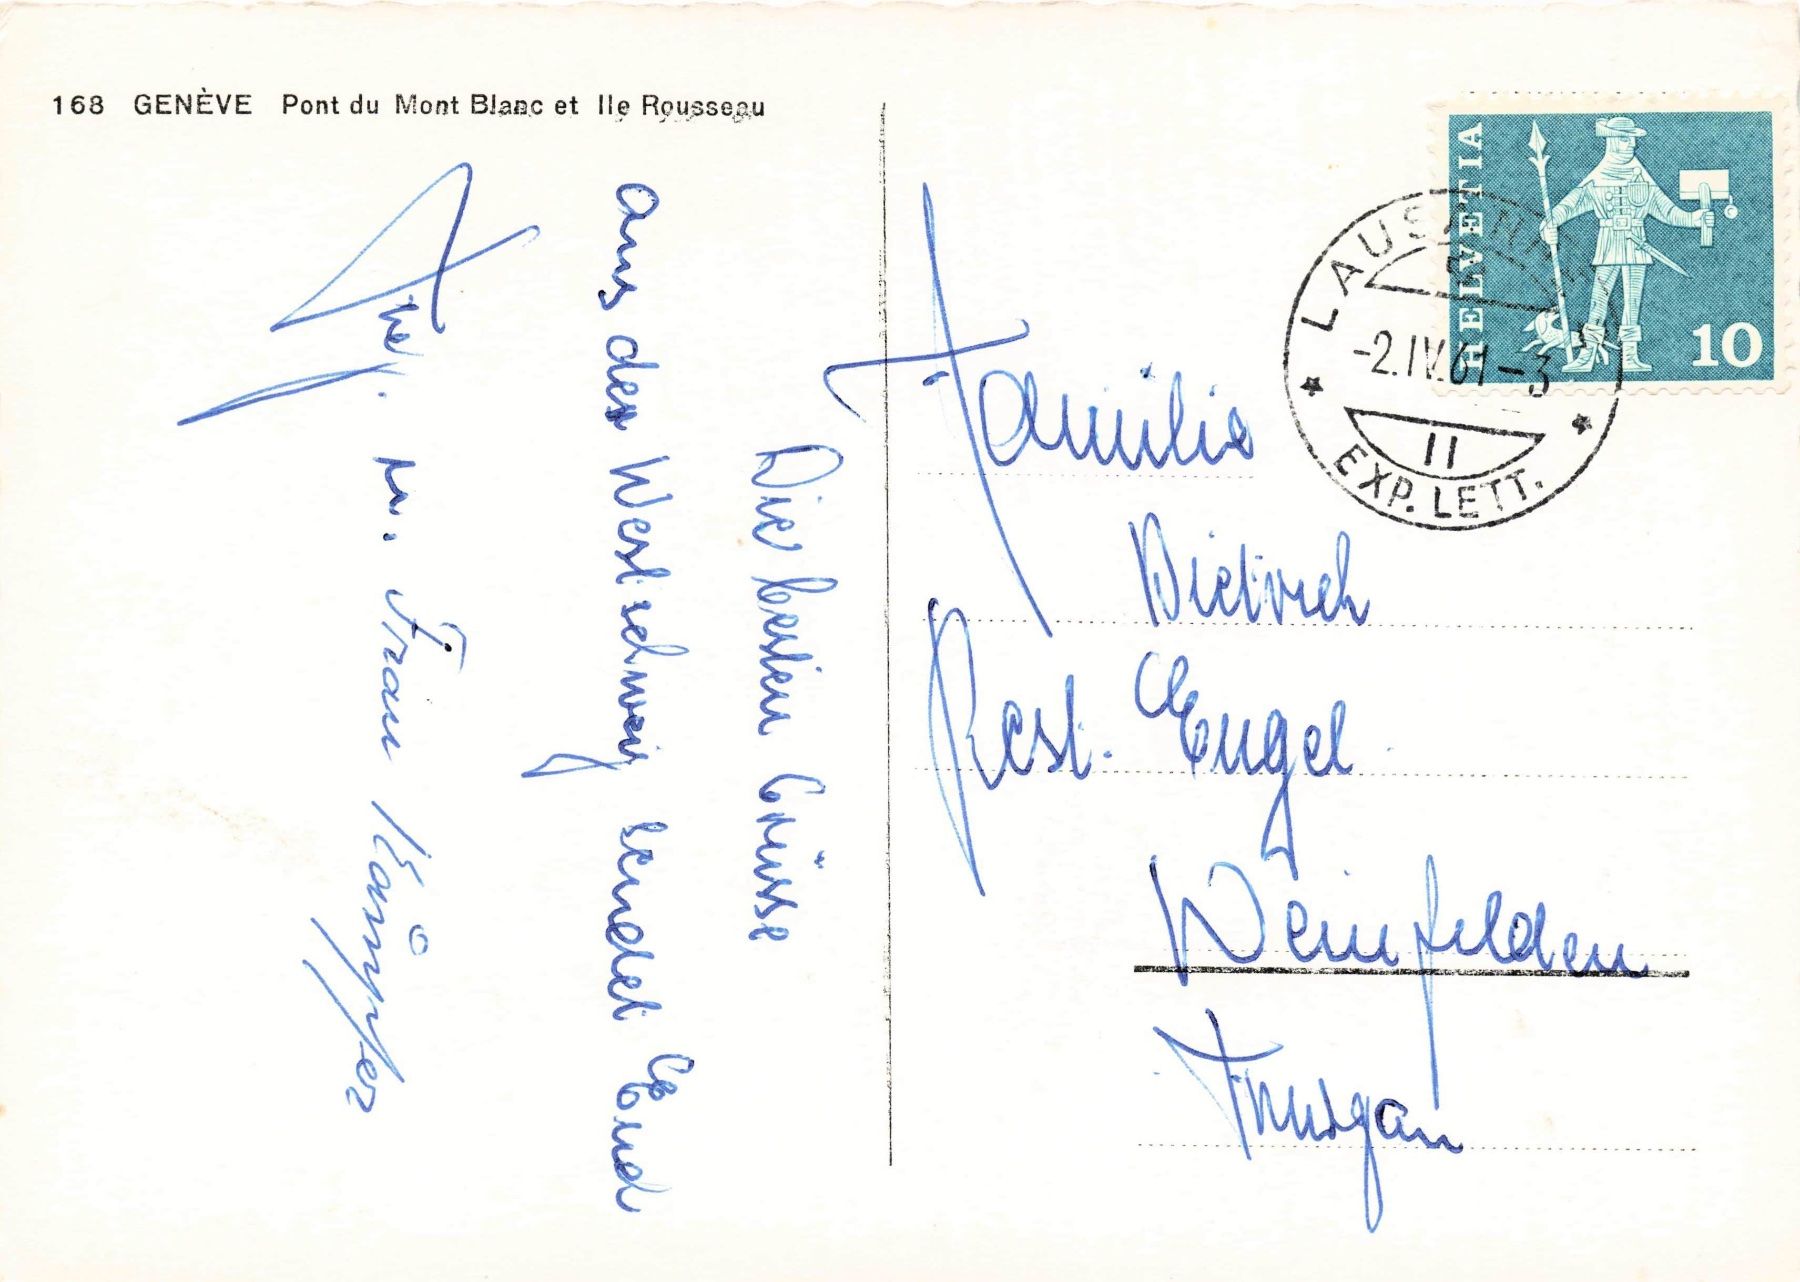 168 GENÈVE Pont du Mont Blanc et Ile Rousseau
Die besten Grüsse
aus der Westschweiz sendet Euch
u. Frau Kämpfer
HELVETIA
10
LAUSANNE
-2.IV.61-3
11
EXP. LETT.
Familie
Dietrich
Rest. Engel
Weinfelden
Thurgau